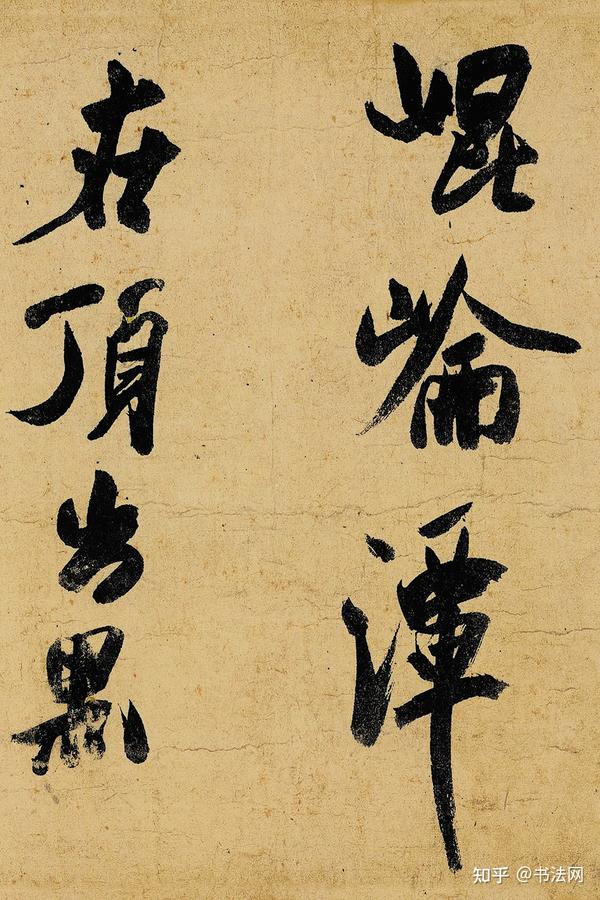 崐崘潭
在頂出黑
知乎 @书法网